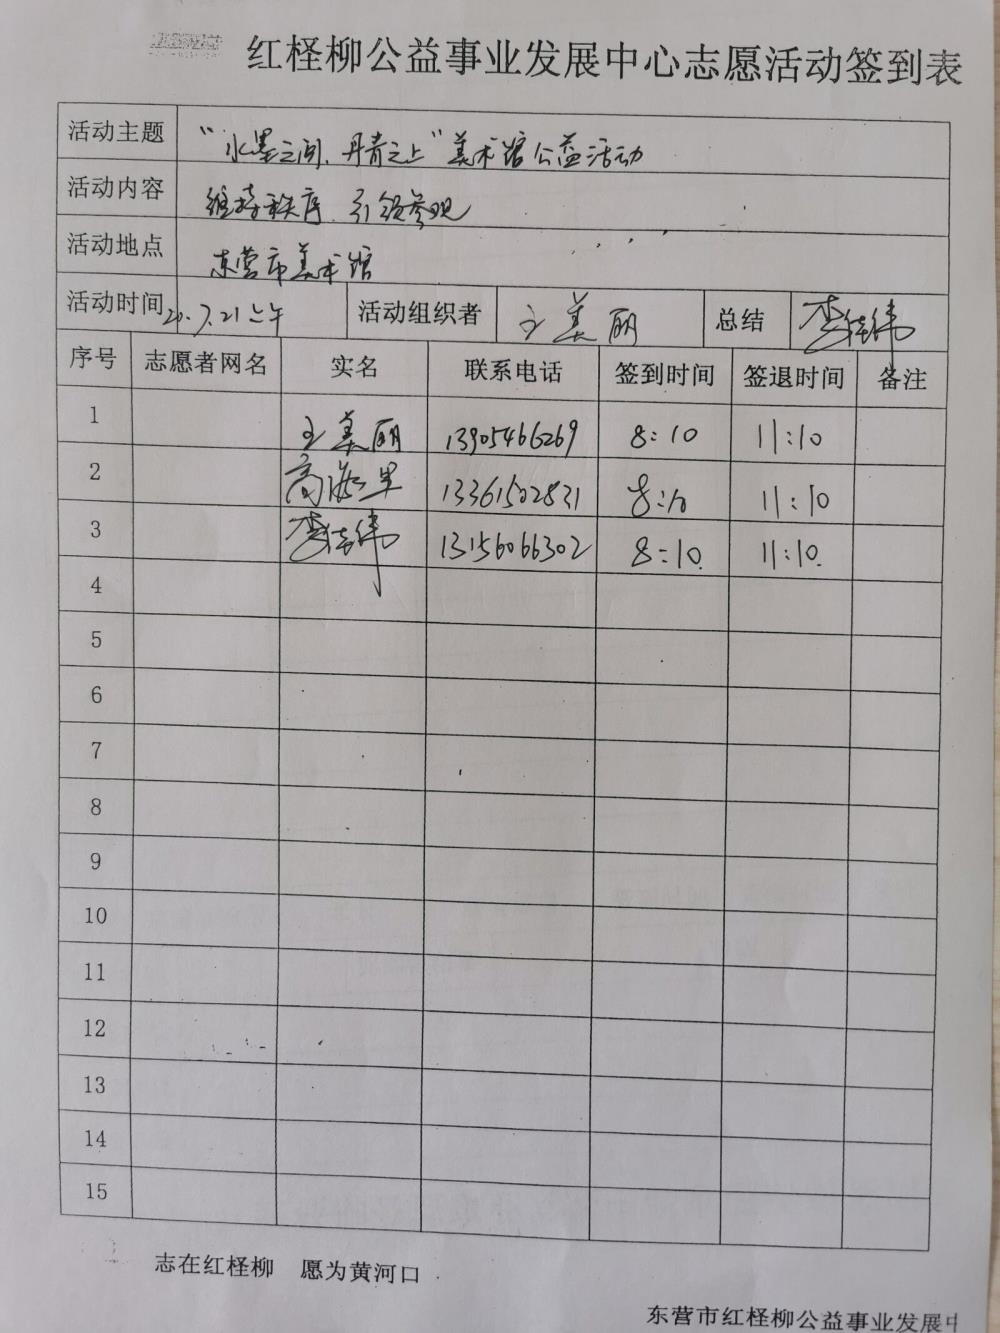 红柽柳公益事业发展中心志愿活动签到表
活动主题 “水墨之间、丹青之上”美术馆公益活动
活动内容 维持秩序、引领参观
活动地点 东营市美术馆
活动时间 20.7.21上午 活动组织者 王美丽 总结
序号 志愿者网名 实名 联系电话 签到时间 签退时间 备注
1 王美丽 13905466269 8:10 11:10
2 13361502831 8:10 11:10
3 13156066302 8:10 11:10
4
5
6
7
8
9
10
11
12
13
14
15
志在红柽柳 愿为黄河口
东营市红柽柳公益事业发展中